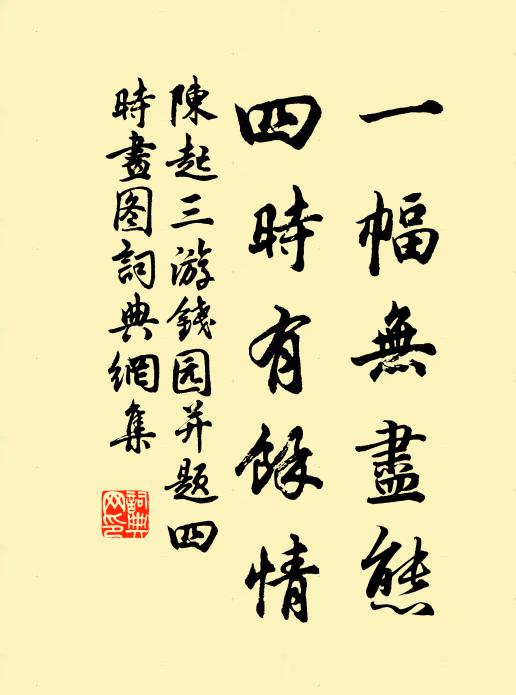 一幅無盡態
四時有餘情
陳起三游錢园并题四
時畫图詞典網集
詞典网印